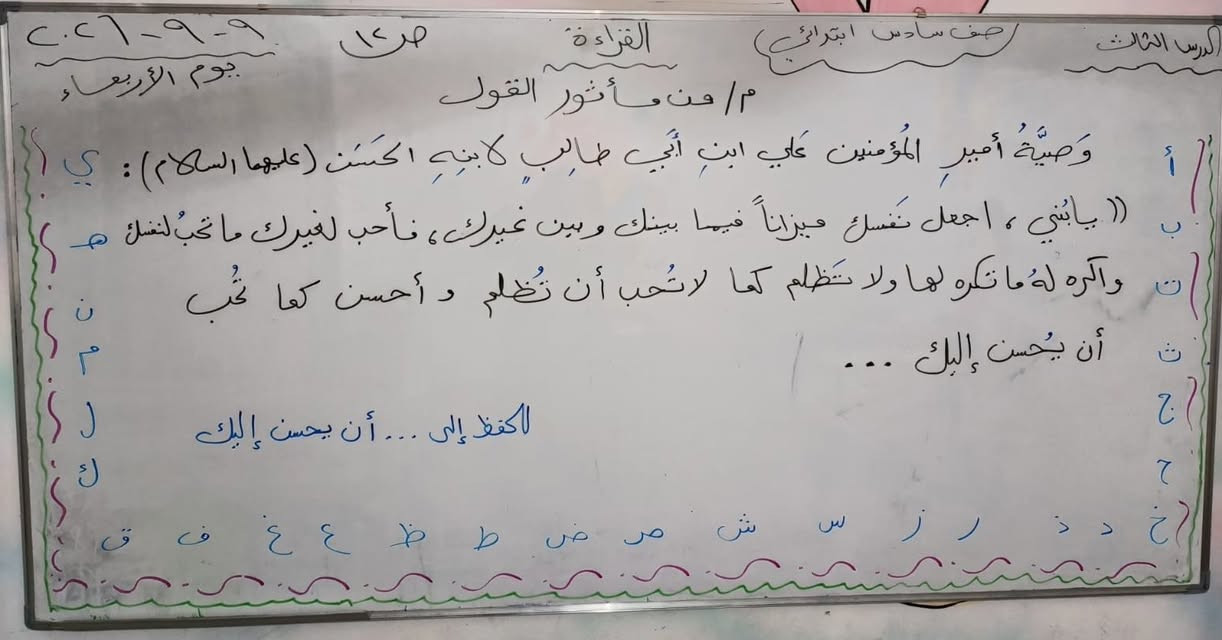 الدرس الثالث صف سادس ابتدائي القراءة ص ١٢ ٩-٩-٢٠٢٦
يوم الأربعاء
م/ من مأثور القول
وَصيَّةُ أميرِ المُؤمنين عَلي ابنِ أَبي طالِبٍ لابنِهِ الحَسَن (عليهما السلام):
(( يابُني، اجعل نَفسك ميزاناً فيما بينك وبين غيرك، فأحب لغيرك ما تحبُ لنفسك
واكره لهُ ما تكره لها ولا تَظلم كما لاتُحب أن تُظلم و أحسن كما تُحب
أن يُحسن إليك ...
للحفظ إلى ... أن يحسن إليك
أ
ب
ت
ث
ج
ح
خ د ذ ر ز س ش ص ض ط ظ ع غ ف ق
ك
ل
م
ن
هـ
ي